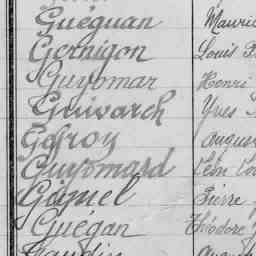 Guéguan Mauric
Gernigon Louis
Guyomar Henri
Guivarch Yves
Gefroy August
Guyomard Léon Lou
Gamel Pierre
Guégan Théodore
Gaudin August